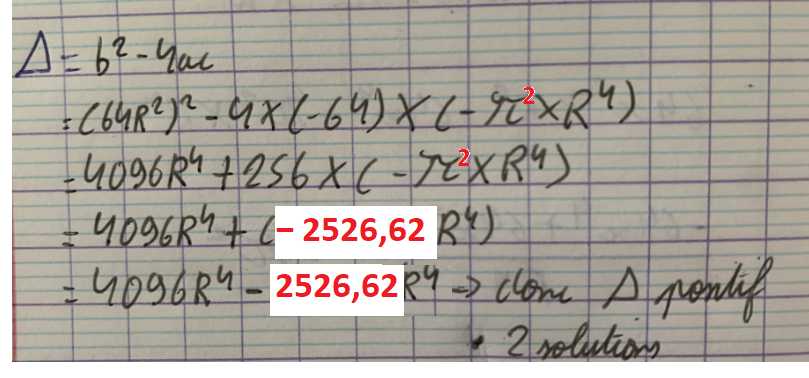 Δ = b² - 4ac
= (64R²)² - 4×(-64)×(-π²×R⁴)
= 4096R⁴ + 256×(-π²×R⁴)
= 4096R⁴ + (– 2526,62 R⁴)
= 4096R⁴ - 2526,62 R⁴ → donc Δ positif
• 2 solutions